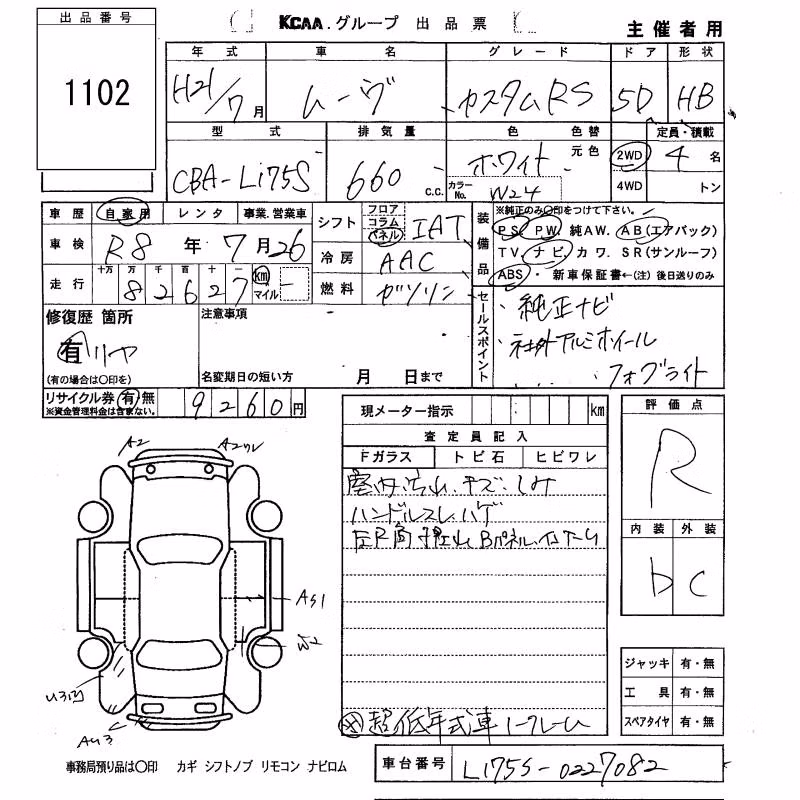 出品番号
1102
KCAA.グループ 出品票
主催者用
年式 車名 グレード ドア 形状
H21/7月 ムーヴ カスタムRS 5D HB
型式 排気量 色 色替 定員・積載
CBA-L175S 660 C.C. ホワイト 元色 2WD 4名
カラーNo. W24 4WD トン
車歴 自家用 レンタ 事業.営業車
シフト フロア コラム パネル IAT
車検 R8年7月26
冷房 AAC
走行 十万 万 千 百 十 一
82627 km マイル
燃料 ガソリン
装備品
※純正のみ○印をつけて下さい。
PS PW 純AW. AB(エアバック)
TV ナビ カワ. SR(サンルーフ)
ABS・新車保証書←(注)後日送りのみ
セールスポイント
・純正ナビ
・社外アルミホイール
・フォグライト
修復歴 箇所
有 リヤ
(有の場合は○印を)
注意事項
名変期日の短い方 月 日まで
リサイクル券 有 無
※資金管理料金は含まない。
9260円
現メーター指示 km
査定員記入
Fガラス トビ石 ヒビワレ
室内汚れ.キズ.シミ
ハンドルスレ.ハゲ
評価点
R
内装 外装
b C
A2 A2
AS1
W2
ジャッキ 有・無
工具 有・無
スペアタイヤ 有・無
※超低年式車ノークレーム
事務局預り品は○印 カギ シフトノブ リモコン ナビロム
車台番号 L175S-0227082